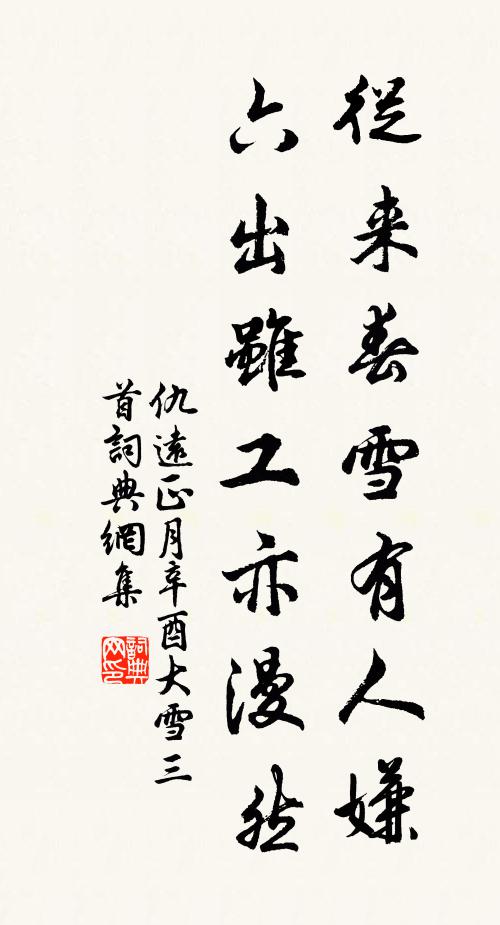 從来春雪有人嫌
六出雖工亦漫然
仇遠正月辛酉大雪三
首詞典網集
詞典
网印